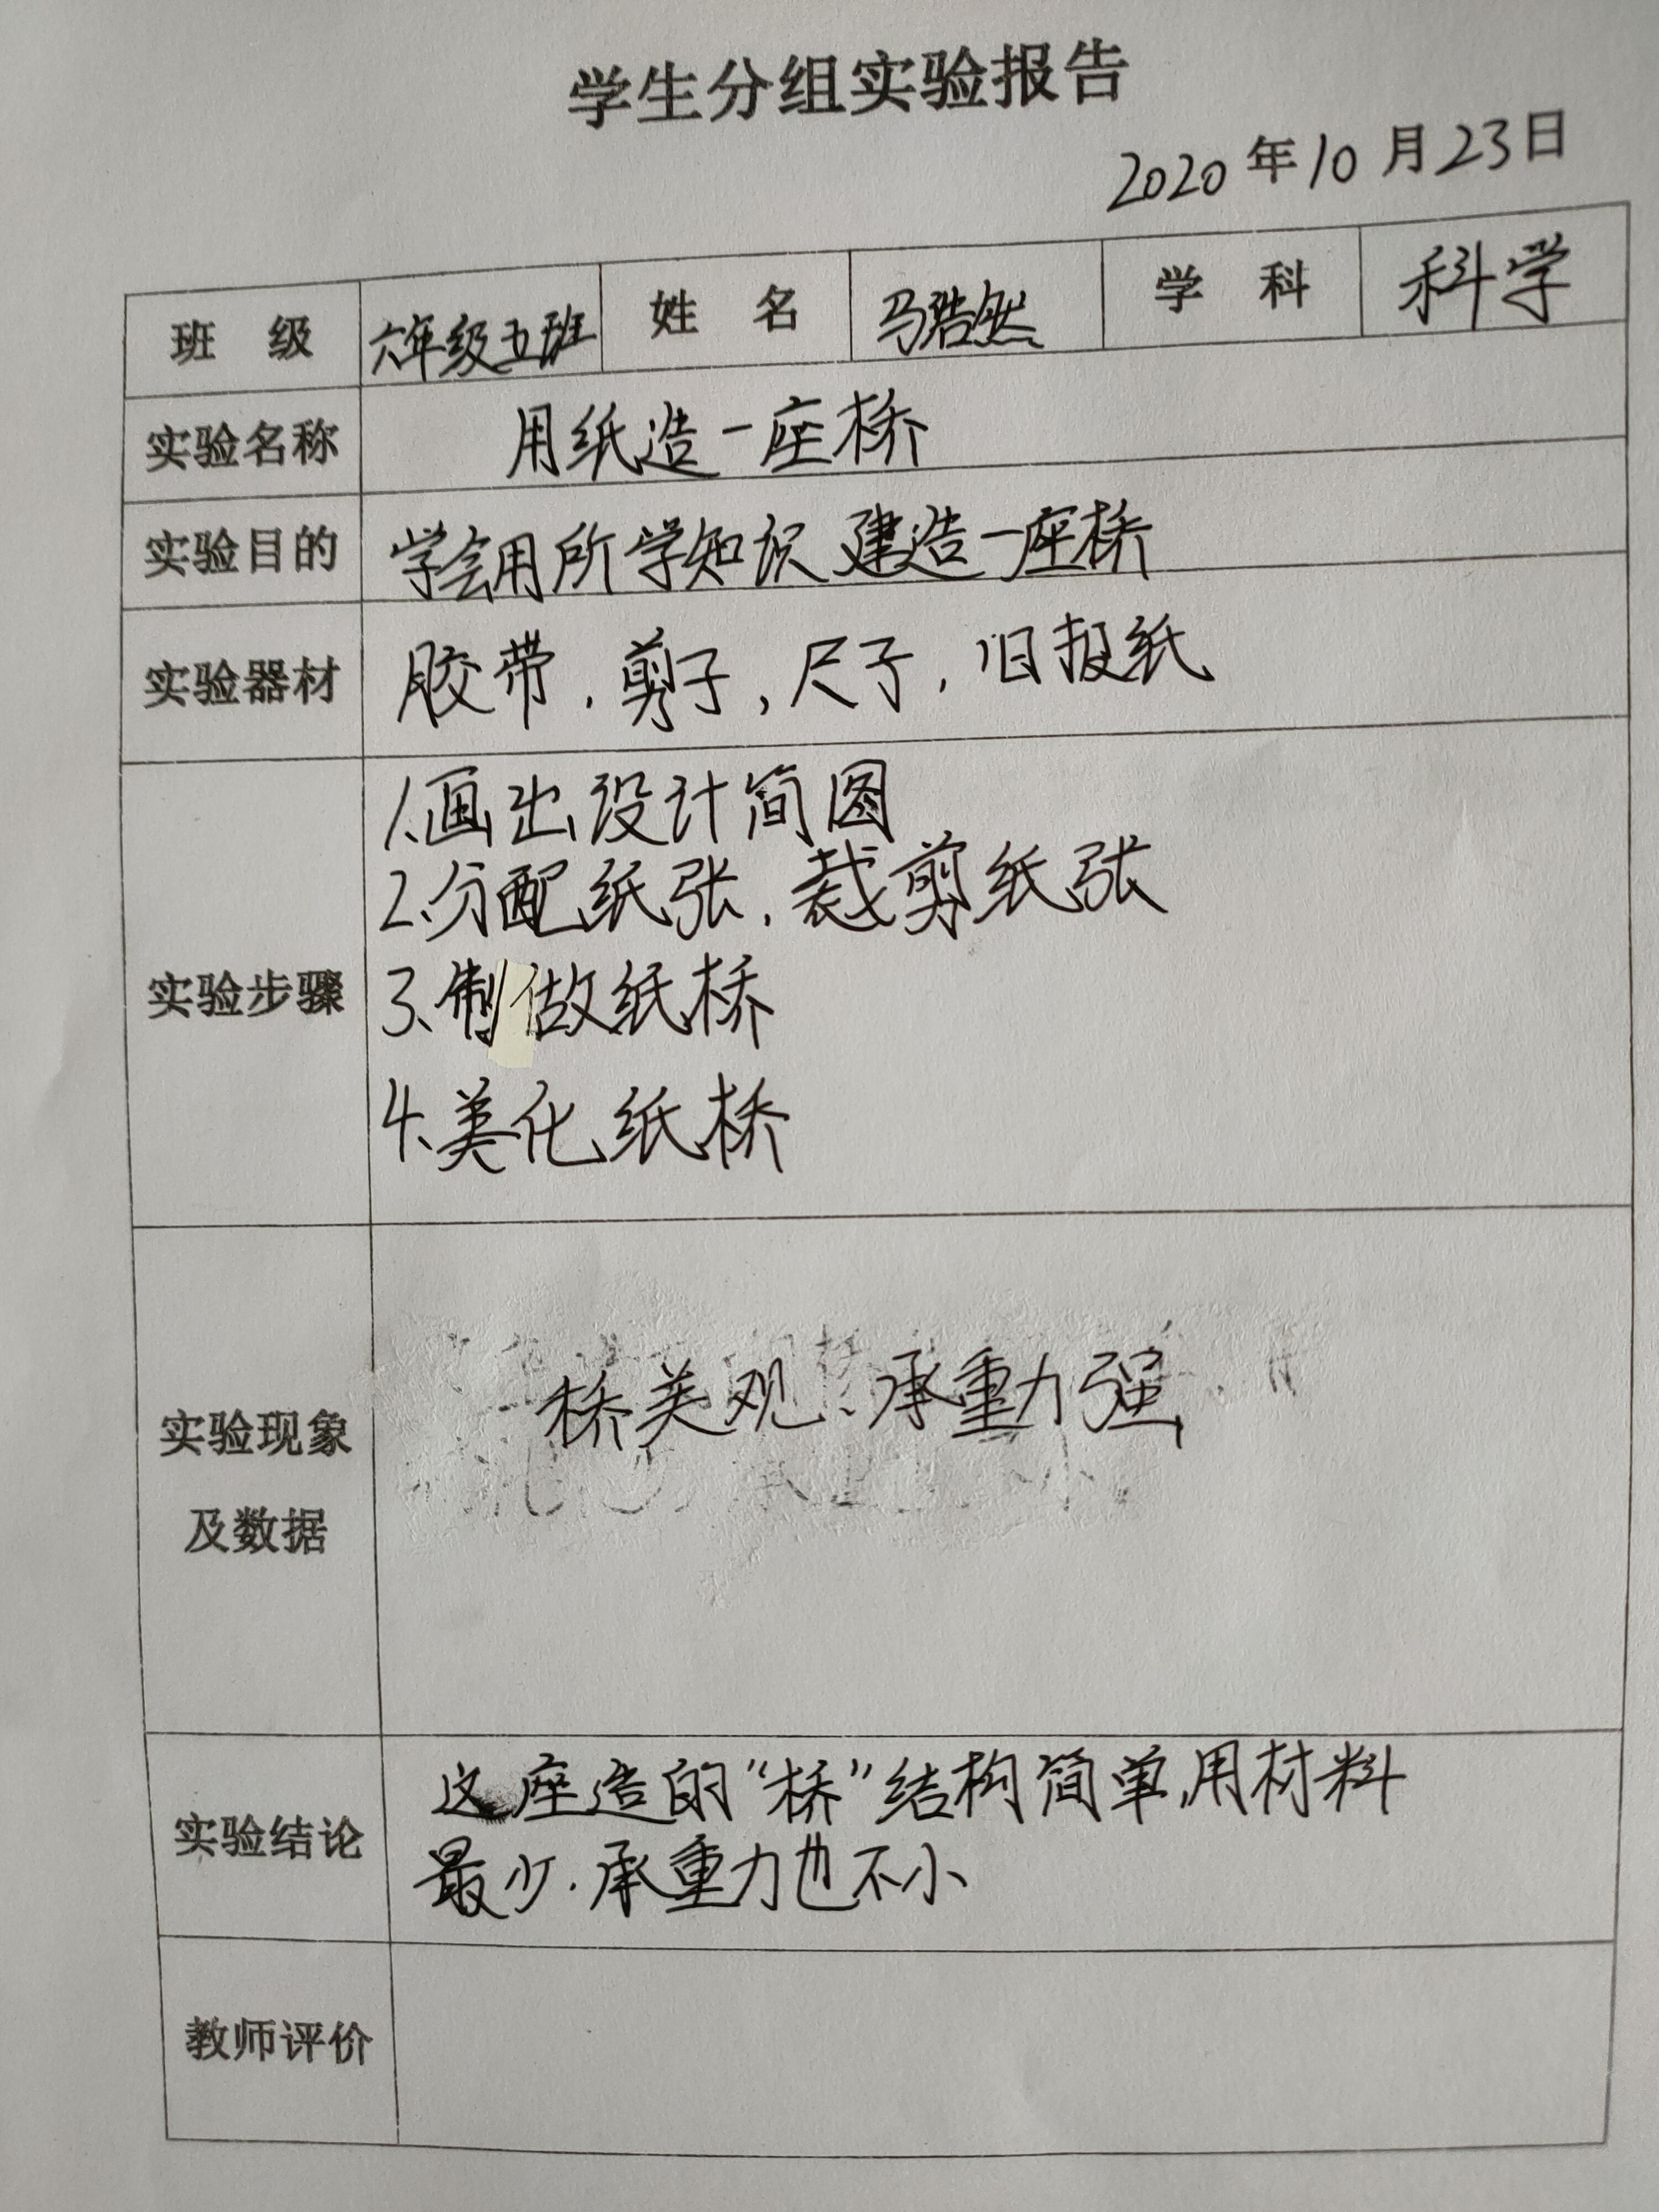 学生分组实验报告
2020年10月23日
班 级 六年级五班 姓 名 马浩然 学 科 科学
实验名称 用纸造一座桥
实验目的 学会用所学知识建造一座桥
实验器材 胶带，剪子，尺子，旧报纸
实验步骤
1、画出设计简图
2、分配纸张，裁剪纸张
3、制做纸桥
4、美化纸桥
实验现象
及数据
桥美观、承重力强
实验结论
这座造的“桥”结构简单，用材料
最少．承重力也不小
教师评价